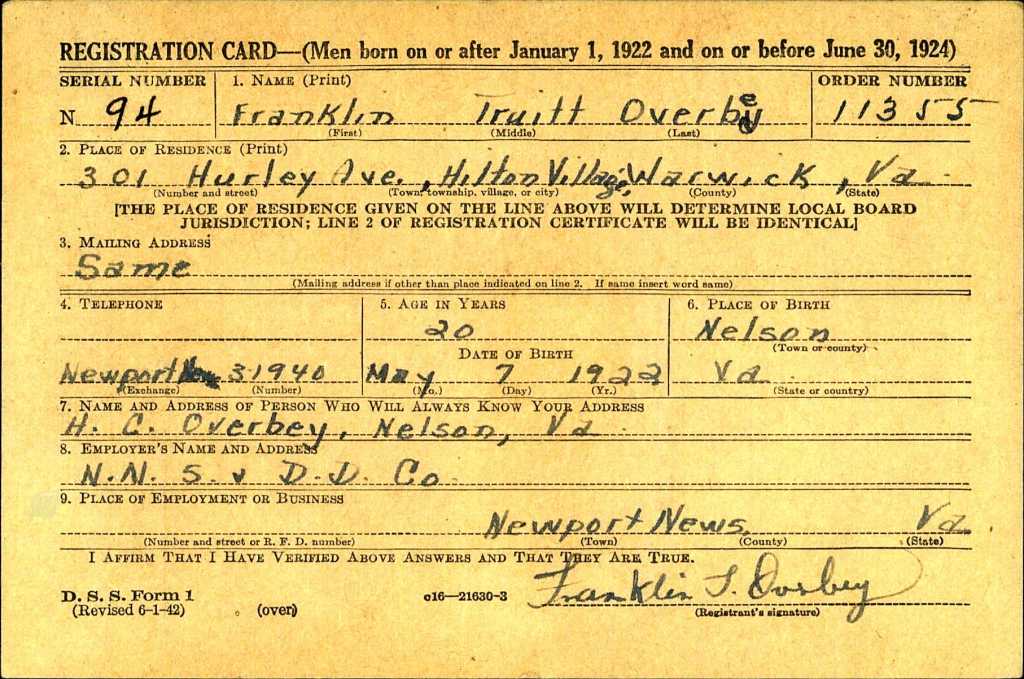 REGISTRATION CARD—(Men born on or after January 1, 1922 and on or before June 30, 1924)
SERIAL NUMBER 1. NAME (Print) ORDER NUMBER
N 94 Franklin Truitt Overbey 11355
(First) (Middle) (Last)
2. PLACE OF RESIDENCE (Print)
301 Hurley Ave., Hilton Village, Warwick, Va
(Number and street) (Town, township, village, or city) (County) (State)
[THE PLACE OF RESIDENCE GIVEN ON THE LINE ABOVE WILL DETERMINE LOCAL BOARD
JURISDICTION; LINE 2 OF REGISTRATION CERTIFICATE WILL BE IDENTICAL]
3. MAILING ADDRESS
Same
(Mailing address if other than place indicated on line 2. If same insert word same)
4. TELEPHONE 5. AGE IN YEARS 6. PLACE OF BIRTH
20 Nelson
DATE OF BIRTH (Town or county)
Newport News 31940 May 7 1922 Va
(Exchange) (Number) (Mo.) (Day) (Yr.) (State or country)
7. NAME AND ADDRESS OF PERSON WHO WILL ALWAYS KNOW YOUR ADDRESS
H. C. Overbey, Nelson, Va
8. EMPLOYER'S NAME AND ADDRESS
N.N. S. & D.D. Co
9. PLACE OF EMPLOYMENT OR BUSINESS
Newport News Va
(Number and street or R. F. D. number) (Town) (County) (State)
I AFFIRM THAT I HAVE VERIFIED ABOVE ANSWERS AND THAT THEY ARE TRUE.
Franklin T. Overbey
D. S. S. Form 1 c16—21630-3 (Registrant's signature)
(Revised 6-1-42) (over)